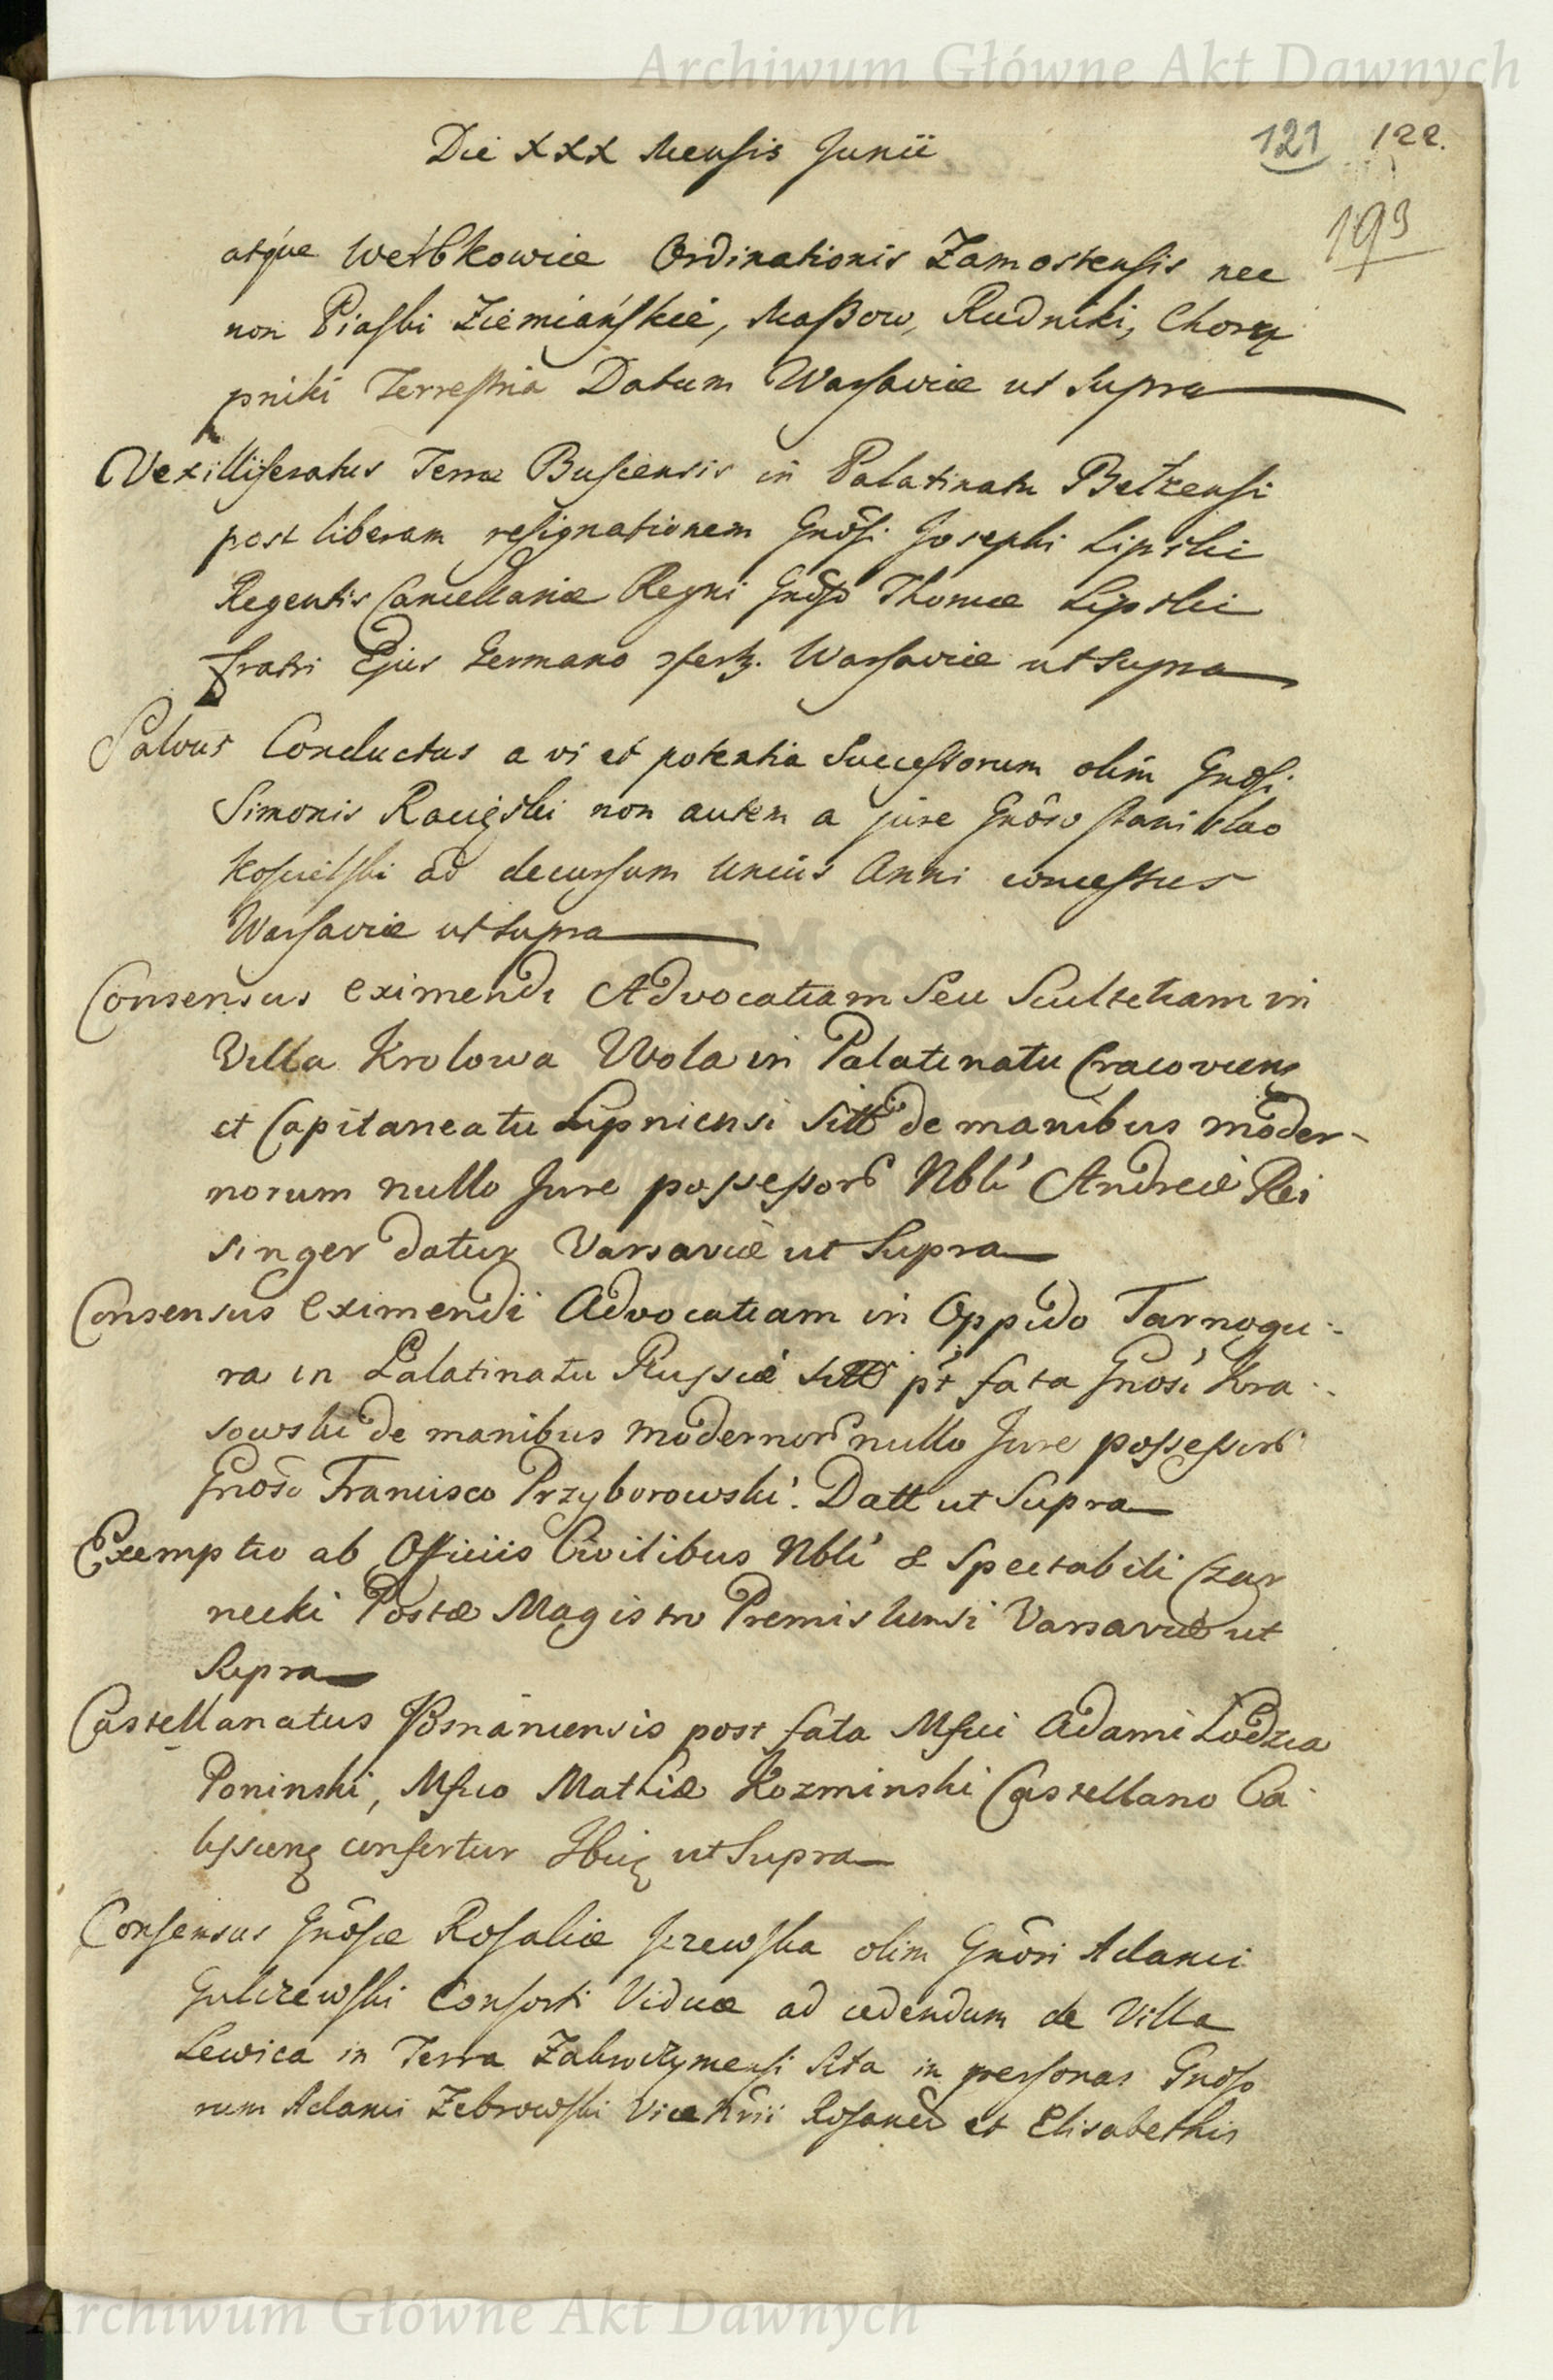 Archiwum Główne Akt Dawnych
Die XXX Mensis Junii
121 122.
193
atque Werbkowice Ordinationis Zamostensis nec
non Piaski Ziemiańskie, Maßow, Rudniki, Chorą
pniki Terrestria Datum Warsaviæ ut supra
Vexilliferatus Terræ Buscensis in Palatinatu Belzensi
post liberam resignationem Gnõsi Josephi Lipski
Regentis Cancellariæ Regni Gnõso Thomæ Lipski
fratri Ejus Germano Warsaviæ ut supra
Salvus Conductus a vi et potentia Successorum olim Gnõsi
Simonis Racięski non autem a jure Gnôso Stanislao
Koscielski ad decursum unius Anni concessus
Warsaviæ ut supra
Consensus eximendi Advocatiam Seu Scultetiam in
Villa Krolowa Wola in Palatinatu Cracoviens
et Capitaneatu Lipniensi sitt de manibus moder-
norum nullo Jure possessor Nbli Andreæ Rei
singer datur Varsaviæ ut Supra
Consensus eximendi Advocatiam in Oppido Tarnogu-
ra in Palatinatu Russiæ sitt pt fata Gnosi Kra-
sowski de manibus modernor nullo Jure possessor
Gnoso Francisco Przyborowski. Datt ut Supra
Exemptio ab Officiis Civilibus Nbli & Spectabili Czar
necki Postæ Magistro Premisliensi Varsaviæ ut
Supra
Castellanatus Posnaniensis post fata Mfici Adami Lodzia
Poninski, Mfico Mathiæ Kozminski Castellano Ca
lissiens confertur Ibid ut Supra
Consensus Gnõsæ Rosaliæ olim Gnõsi Adami
Gulczewski Consorti Viduæ ad cedendum de Villa
Lewica in Terra Zakroczymensi sita in personas Gnoso
rum Adami Zebrowski Rosanen et Elisabethis
Archiwum Główne Akt Dawnych